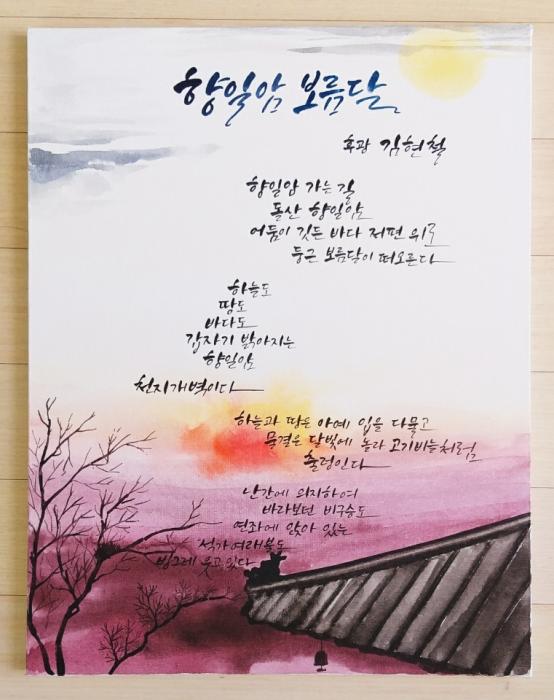 향일암 보름달
후관 김현철
향일암 가는 길
돌산 향일암
어둠이 깃든 바다 저편 위로
둥근 보름달이 떠오른다
하늘도
땅도
바다도
갑자기 밝아지는
향일암
천지개벽이다
하늘과 땅은 아예 입을 다물고
물결은 달빛에 놀라 고기비늘처럼
출렁인다
난간에 의지하여
바라보던 비구승도
연좌에 앉아 있는
석가여래불도
빙그레 웃고있다